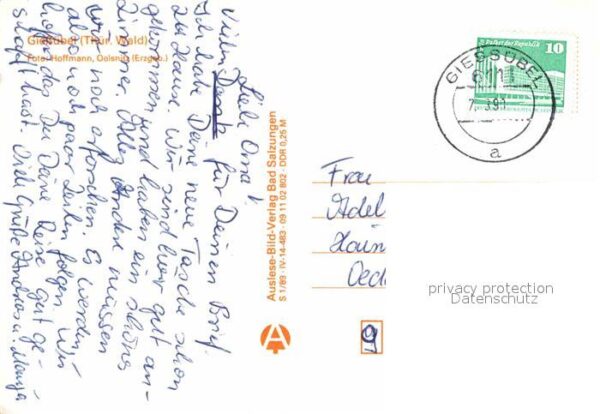 Giessübel (Thür. Wald)
Foto: Hoffmann, Oelsnitz (Erzgeb.)
Liebe Oma!
Vielen Dank für Deinen Brief.
Ich habe Deine neue Tasche schon
zu Hause. Wir sind hier gut an-
gekommen und haben ein schönes
Zimmer. Alles Andere müssen
wir noch erforschen. Es werden
also noch paar Zeilen folgen. Wir
hoffen, das Du Deine Reise gut ge-
schafft hast. Viele Grüße Andreas u. Manja
Auslese-Bild-Verlag Bad Salzungen
S 1/89 · IV-14-483 · 09 11 02 802 · DDR 0,25 M
A
Palast der Republik
10
GIESSÜBEL
6111
a
Frau
Adel
Hain
Oed
9
privacy protection
Datenschutz